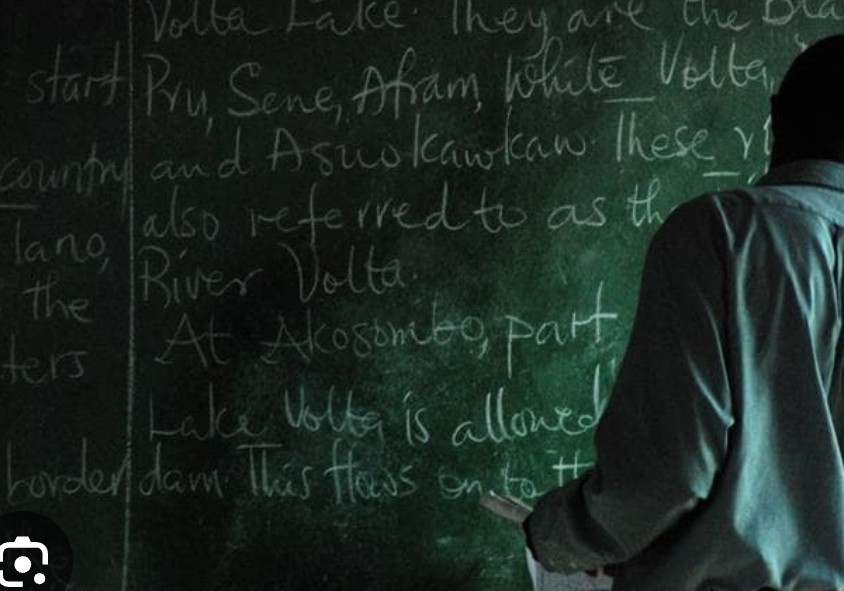 Volta Lake. They are the Bla
start Pru, Sene, Afram, White Volta,
country and Asuokawkaw. These ri
lano, also referred to as th
the River Volta.
ters At Akosombo, part
Lake Volta is allowed
border dam. This flows on to th